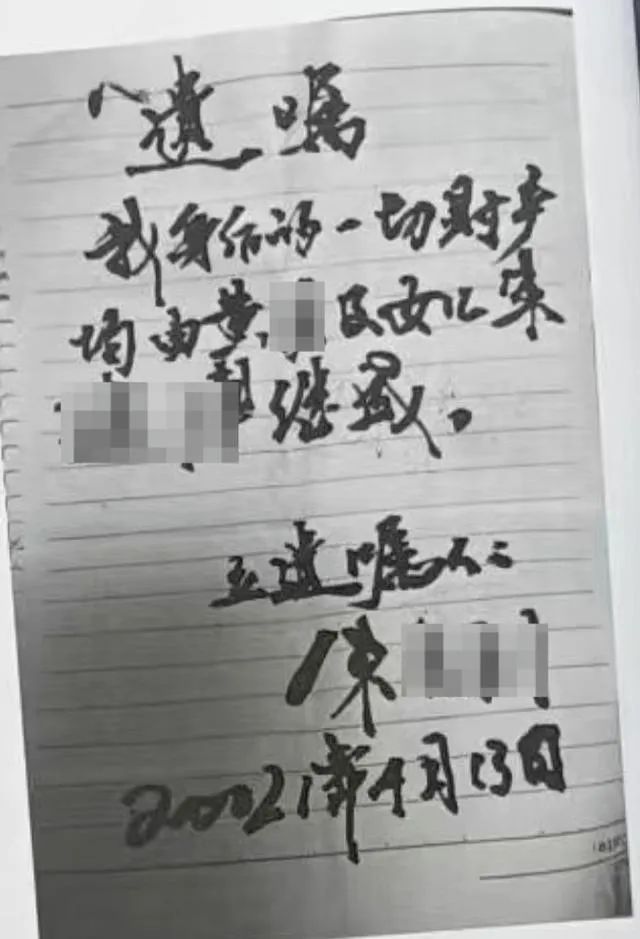 遗嘱
我身后的一切财产
均由黄及女儿陈
继承。
立遗嘱人：
陈
20021年4月13日